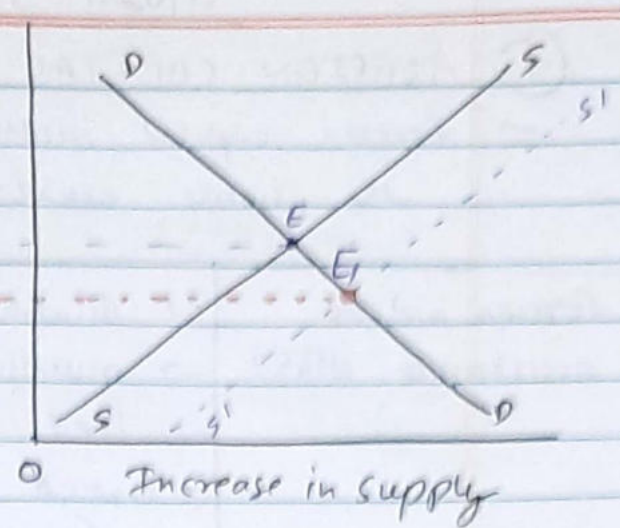 D S
S'
E
E1
S S' D
O
Increase in supply